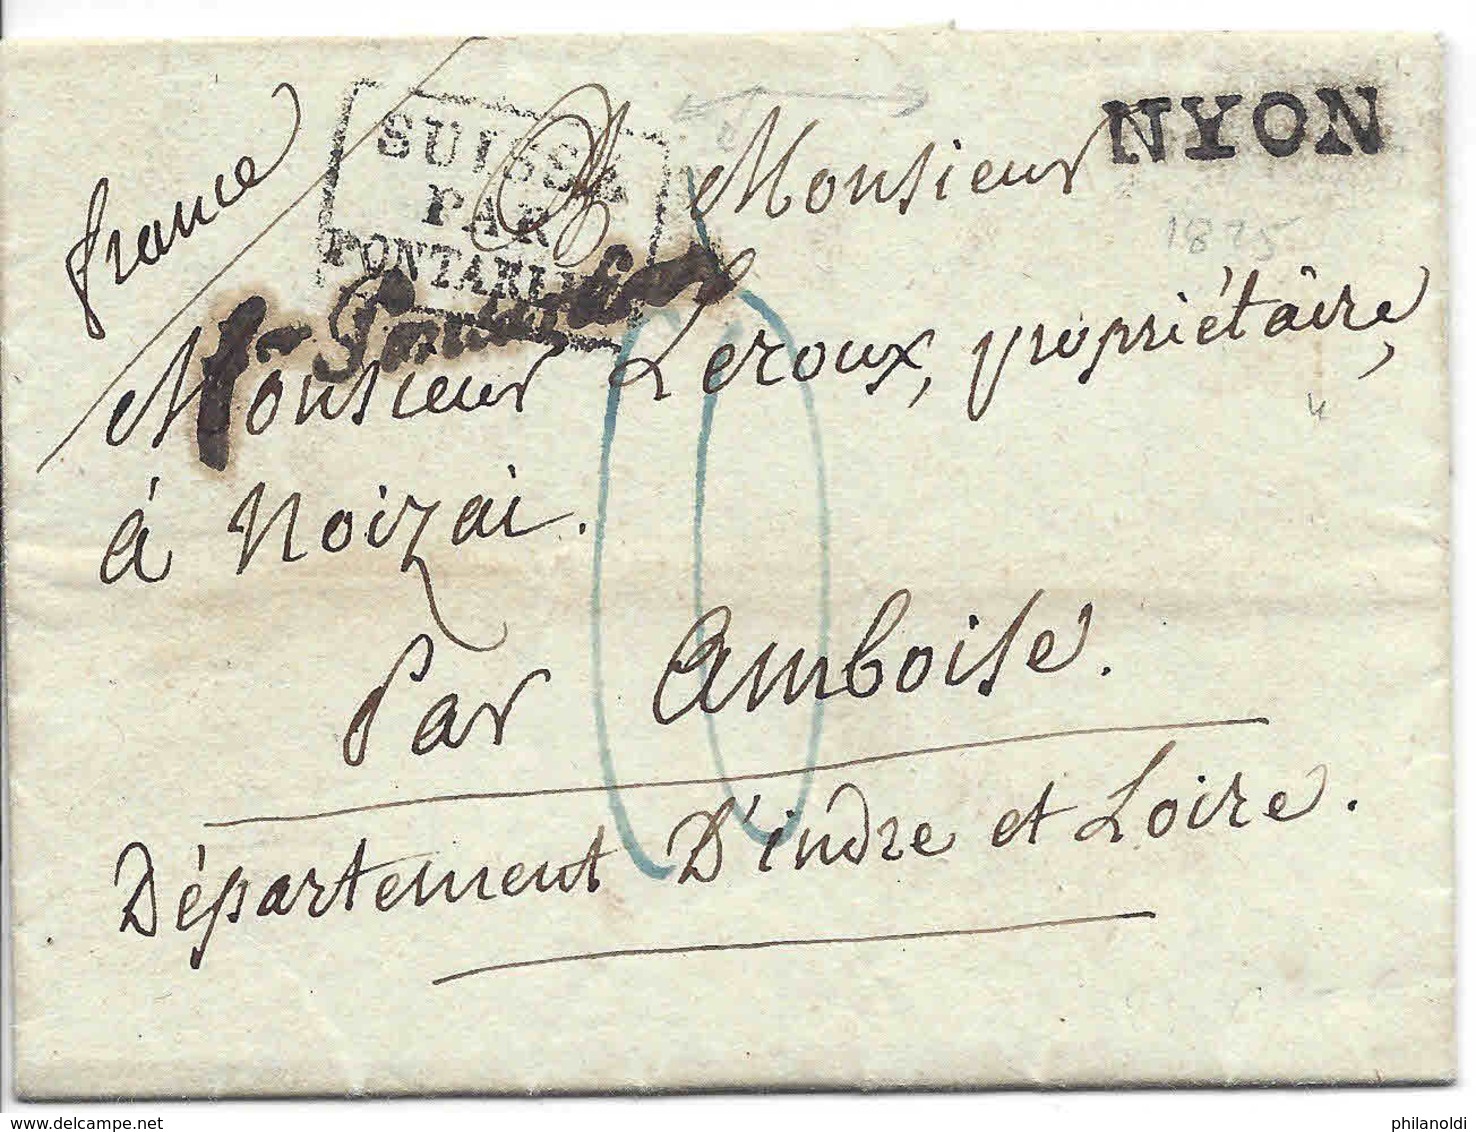 france
SUISSE
PAR
PONTARLIER
NYON
1825
A Monsieur
Monsieur Leroux, propriétâire,
à Noizai.
Par Amboise.
Département D'indre et Loire.
www.delcampe.net
philanoldi